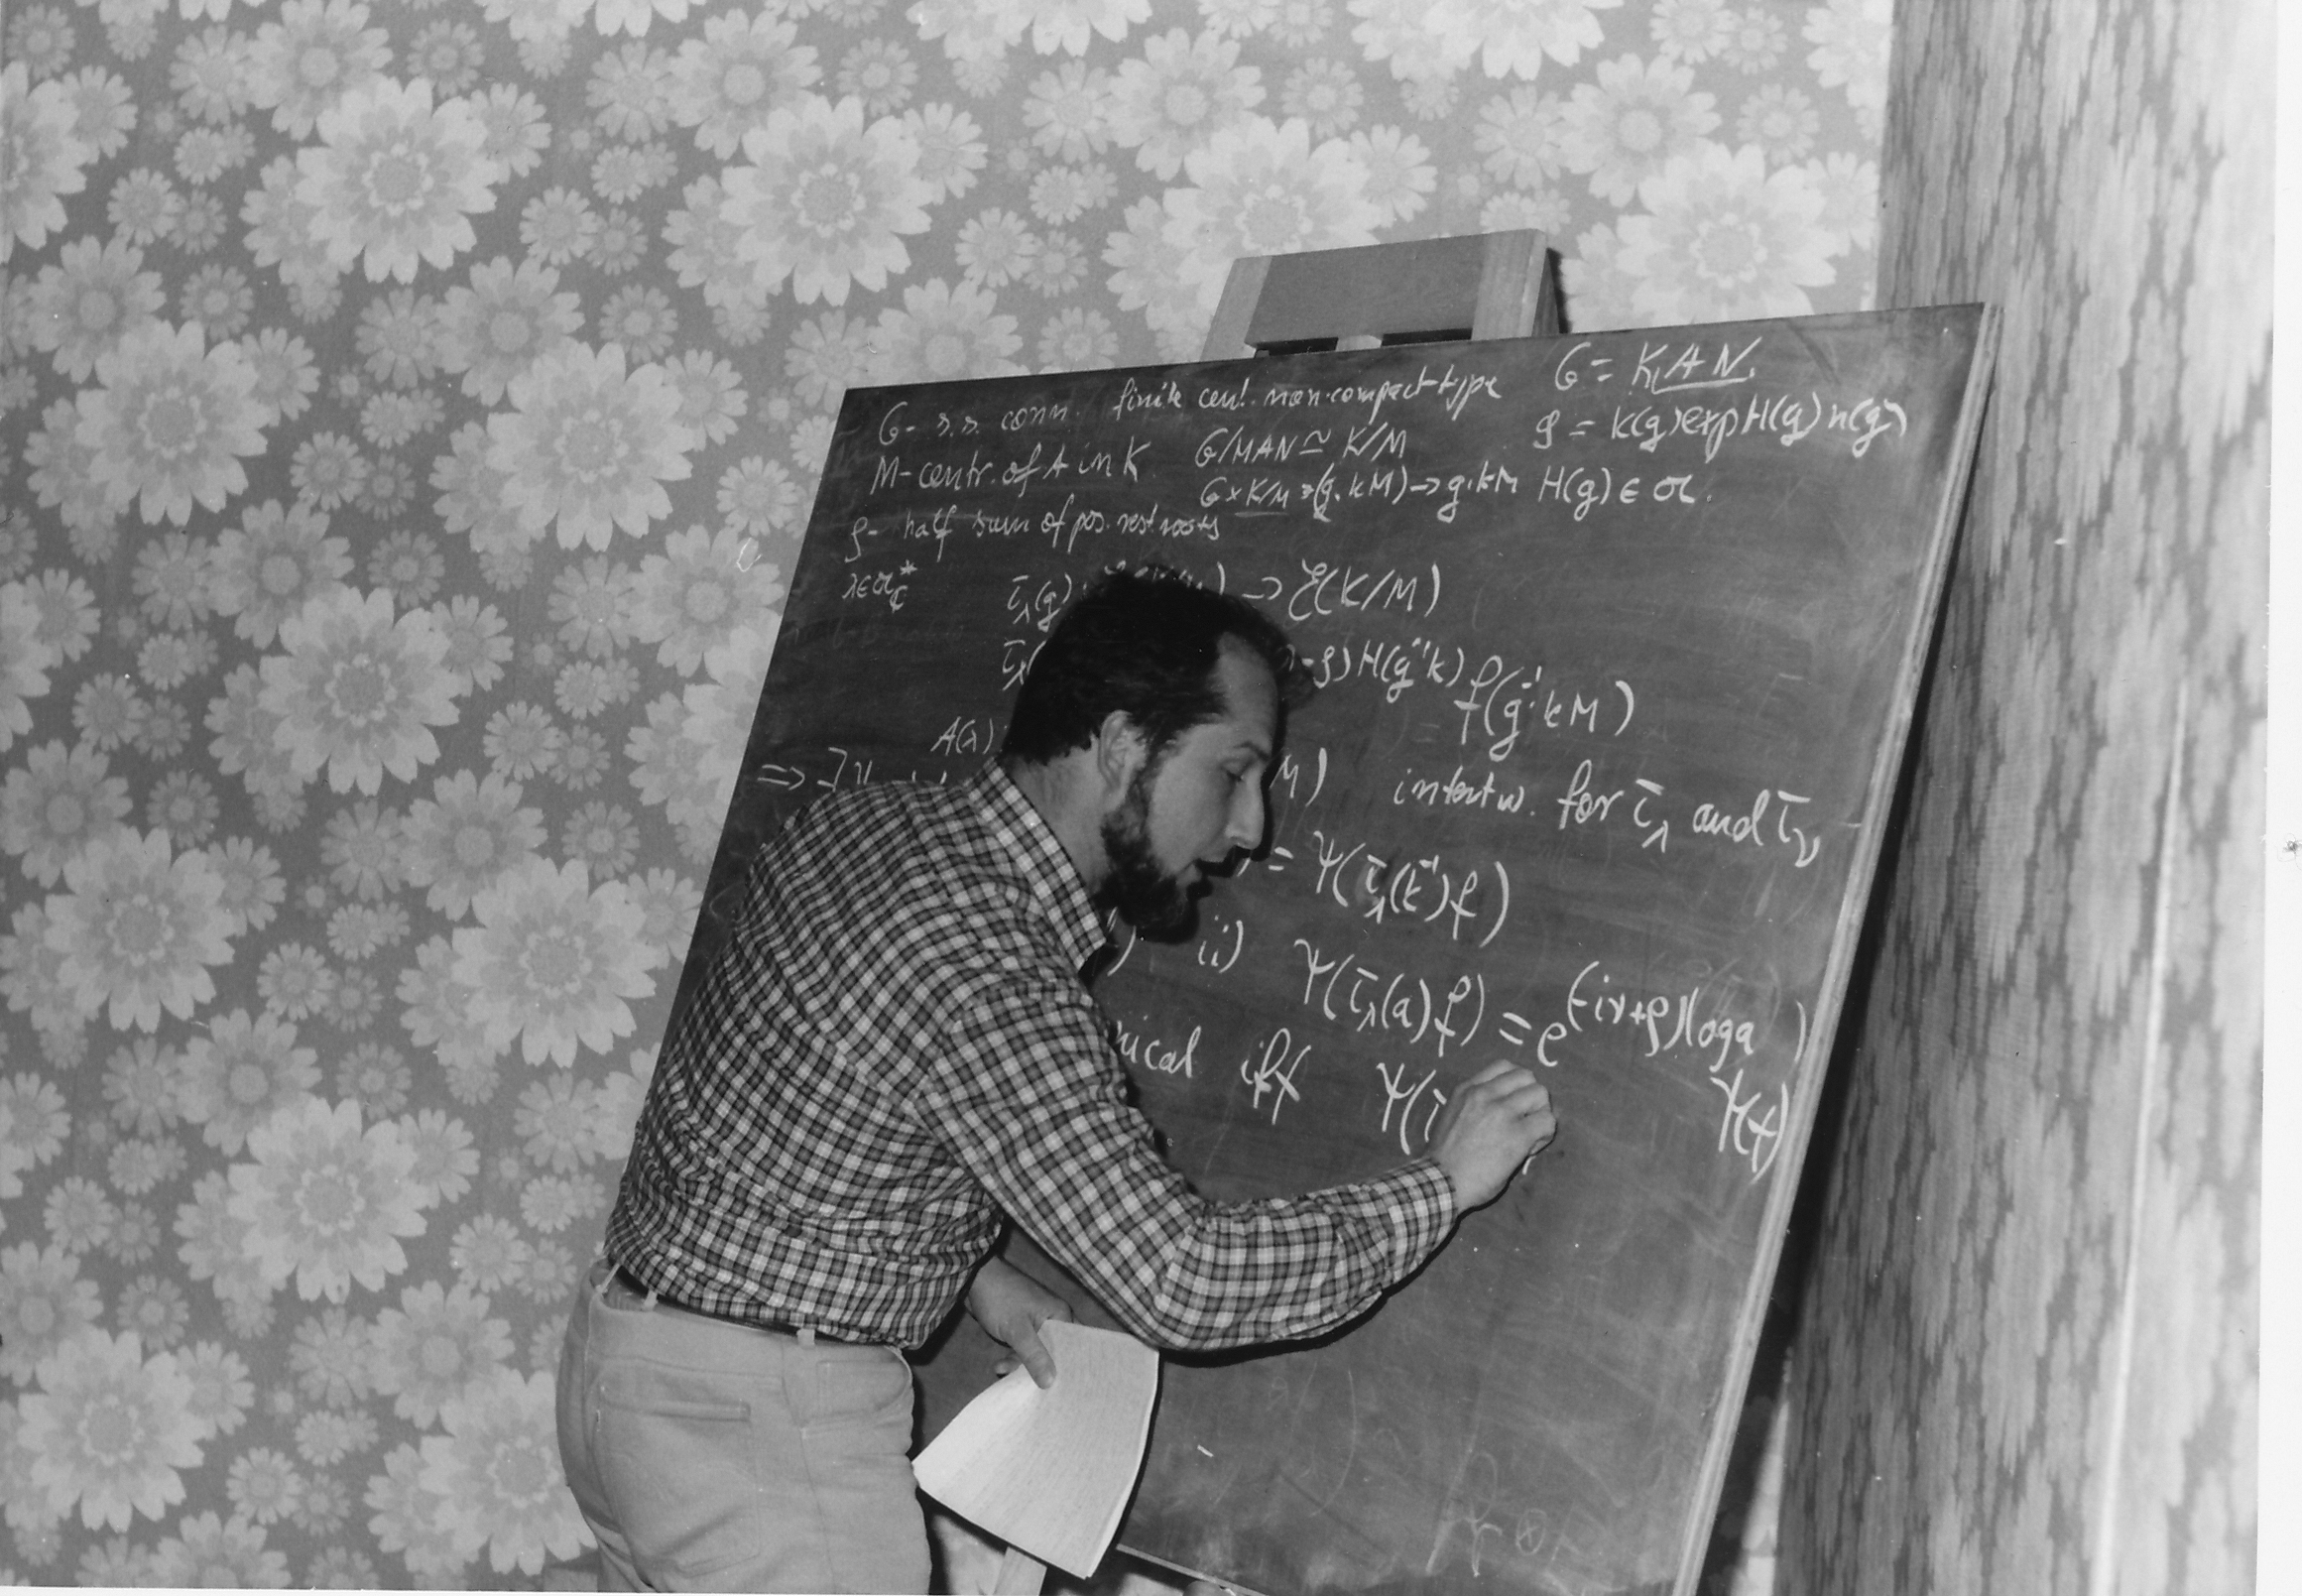 G- s.s. conn. finite cent. non-compact type G = KAN
M-centr. of A in K G/MAN ≃ K/M g = k(g) exp H(g) n(g)
G × K/M ∋ (g, kM) → g·kM H(g) ∈ 𝔞.
ρ- half sum of pos. rest. roots
λ∈𝔞*_ℂ τ_λ(g) → ℰ(K/M)
τ_λ( -ρ)H(g⁻¹k) f(g⁻¹·kM)
A(λ)
⇒ ∃ M) intertw. for τ_λ and τ_ν
= Ψ(τ_λ(k⁻¹)f)
ii) Ψ(τ_λ(a)f) = e^(-iν+ρ)(log a) Ψ(f)
iff Ψ(τ